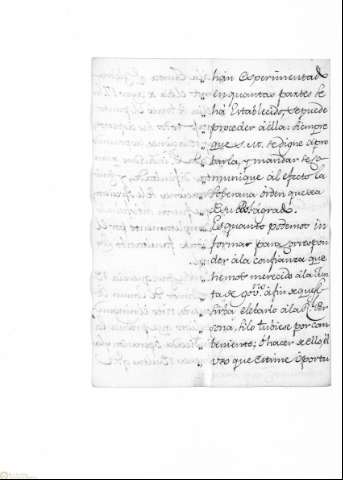 han esperimentado
en quantas partes se
ha Establecido, se puede
proceder á ella: siempre
que S. M. se digne apro
barla, y mandar se co
munique al efecto la
Soberana orden que sea
de su Rl. agrado.
Es quanto podemos in
formar para correspon
der á la confianza que
hemos merecido á la Jun
ta de govno. á fin de que se
sirva elebarlo á la Rl. Per
sona, si lo tubiese por con
beniente; ó hacer de ello el
uso que estime oportu